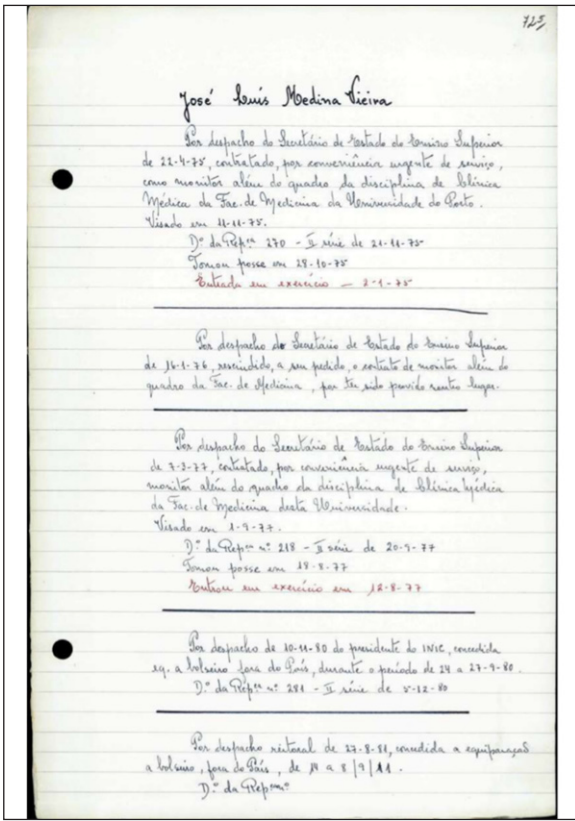 725
José Luís Medina Vieira
Por despacho do Secretário de Estado do Ensino Superior
de 22-4-75, contratado, por conveniência urgente de serviço,
como monitor além do quadro da disciplina de Clínica
Médica da Fac. de Medicina da Universidade do Porto.
Visado em 11-11-75.
D.º da Repca 270 - II série de 21-11-75
Tomou posse em 28-10-75
Entrada em exercício - 2-1-75
Por despacho do Secretário de Estado do Ensino Superior
de 16-1-76, rescindido, a seu pedido, o contrato de monitor além do
quadro da Fac. de Medicina, por ter sido provido noutro lugar.
Por despacho do Secretário de Estado do Ensino Superior
de 7-3-77, contratado, por conveniência urgente de serviço,
monitor além do quadro da disciplina de Clínica Médica
da Fac. de Medicina desta Universidade.
Visado em 1-9-77.
D.º da Repca nº 218 - II série de 20-9-77
Tomou posse em 18-8-77
Entrou em exercício em 12-8-77
Por despacho de 10-11-80 do presidente do INIC, concedida
eq. a bolseiro fora do País, durante o período de 24 a 27-9-80.
D.º da Repca nº 281 - II série de 5-12-80
Por despacho reitoral de 27-8-81, concedida a equiparação
a bolseiro, fora do País, de a 8/9/11.
D.º da Repca nº